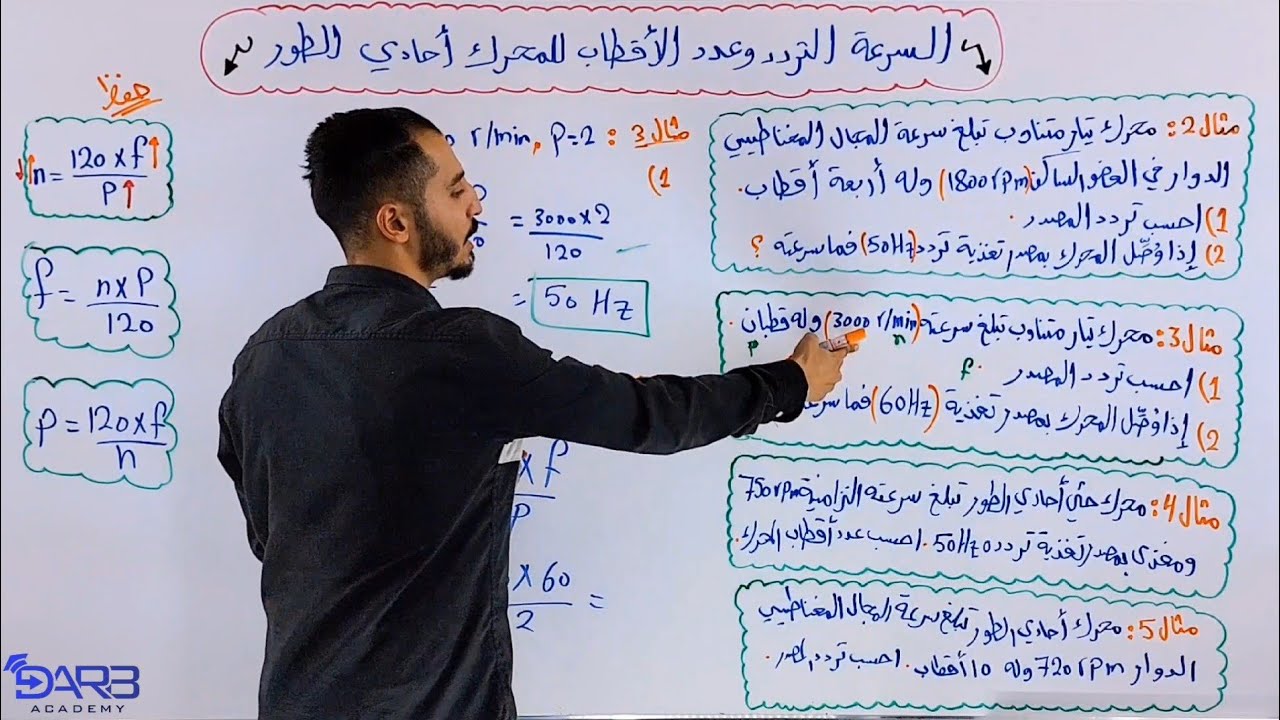 السرعة التردد وعدد الأقطاب للمحرك أحادي الطور
مثال 2: محرك تيار متناوب تبلغ سرعة المجال المغناطيسي
الدوار في العضو الساكن (1800rpm) وله أربعة أقطاب.
1) احسب تردد المصدر.
2) إذا وُصِّل المحرك بمصدر تغذية تردد (50Hz) فما سرعته ؟
مثال 3: محرك تيار متناوب تبلغ سرعته (3000 r/min) وله قطبان.
n
P
1) احسب تردد المصدر.
f
2) إذا وُصِّل المحرك بمصدر تغذية (60Hz) فما
مثال 4: محرك حثي أحادي الطور تبلغ سرعته التزامنية 750rpm
ومغذى بمصدر تغذية تردد 50Hz. احسب عدد أقطاب المحرك.
مثال 5: محرك أحادي الطور تبلغ سرعة المجال المغناطيسي
الدوار 720rpm وله 10 أقطاب. احسب تردد المصدر.
مثال 3: r/min, P=2
1)
= 3000×2
120
= 50 Hz
×f
P
× 60 =
2
حفظ
n = 120×f
P
f = n×P
120
P = 120×f
n
DARB
ACADEMY